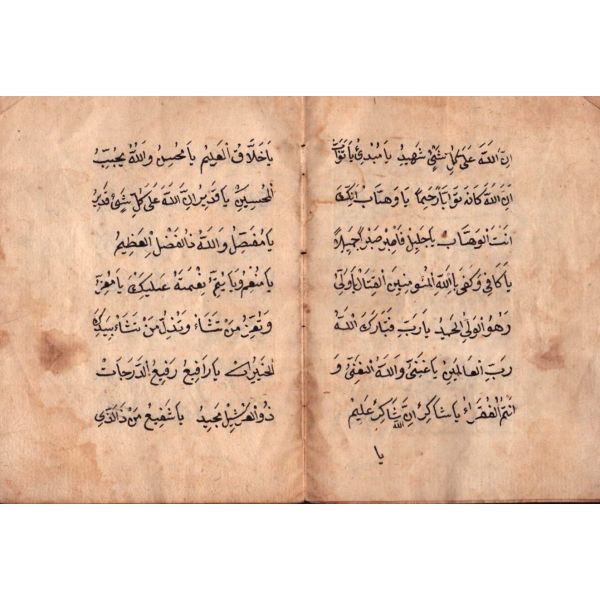 ان الله على كل شئ شهيد يا مبدئ يا تواب
ان الله كانه توابا رحيما يا وهاب انك
انت الوهاب يا جليل فاصبر صبرا جميلا
يا كافى وكفى بالله المئومنين القتال يا ولى
وهو الولى الحميد يا رب فتبارك الله
رب العالمين يا غنى والله الغنى و
انتم الفقراء يا شاكر ان الله شاكر عليم
يا
يا خلاق العليم يا محسن والله يحب
المحسنين يا قدير ان الله على كل شئ قدير
يا مفضل والله ذالفضل العظيم
يا منعم ويا يتم نعمته عليك يا معز
وتعز من تشاء وتذل من تشاء بيدك
الخير يا رافع رفيع الدرجات
ذوالعرش مجيد يا شفيع من ذالذى